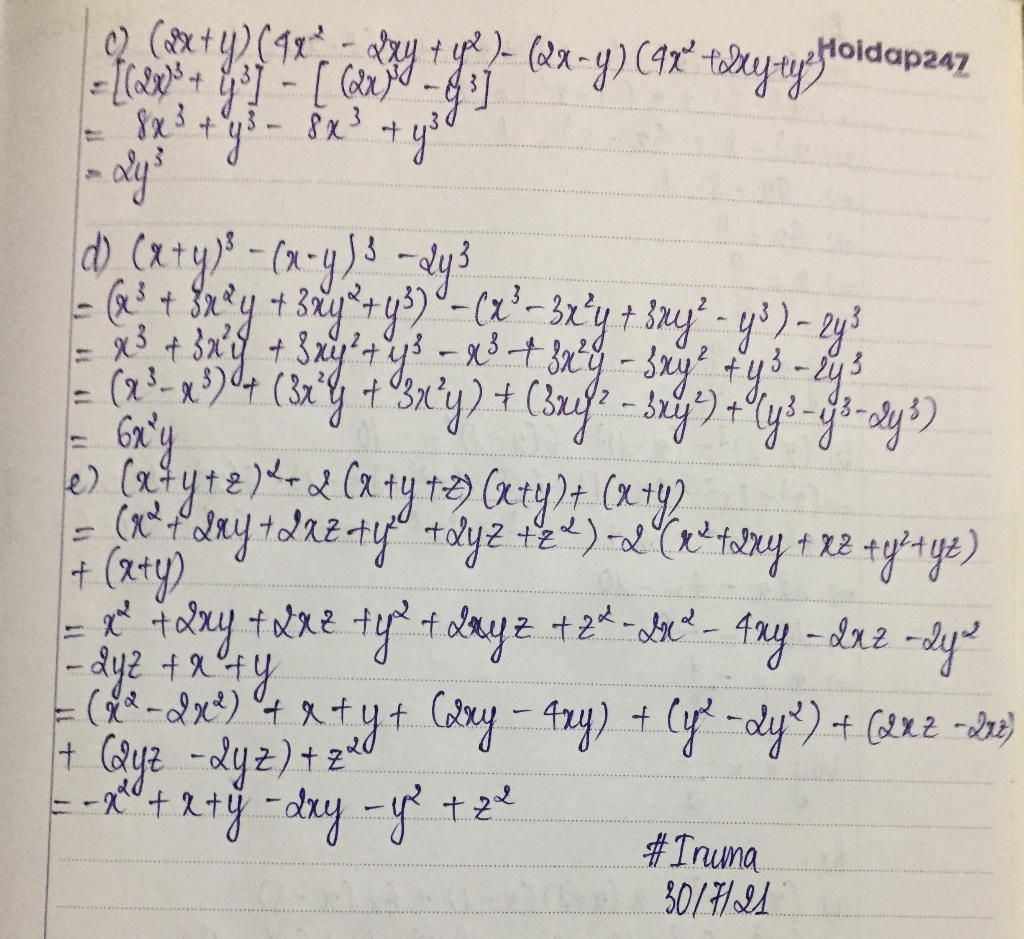 c) (2x+y)(4x² - 2xy + y²) - (2x-y)(4x² + 2xy + y²)
Hoidap247
= [(2x)³ + y³] - [(2x)³ - y³]
= 8x³ + y³ - 8x³ + y³
= 2y³
d) (x+y)³ - (x-y)³ - 2y³
= (x³ + 3x²y + 3xy² + y³) - (x³ - 3x²y + 3xy² - y³) - 2y³
= x³ + 3x²y + 3xy² + y³ - x³ + 3x²y - 3xy² + y³ - 2y³
= (x³ - x³) + (3x²y + 3x²y) + (3xy² - 3xy²) + (y³ - y³ - 2y³)
= 6x²y
e) (x+y+z)² - 2(x+y+z)(x+y) + (x+y)
= (x² + 2xy + 2xz + y² + 2yz + z²) - 2(x² + 2xy + xz + y² + yz)
+ (x+y)
= x² + 2xy + 2xz + y² + 2xyz + z² - 2x² - 4xy - 2xz - 2y²
- 2yz + x + y
= (x² - 2x²) + x + y + (2xy - 4xy) + (y² - 2y²) + (2xz - 2xz)
+ (2yz - 2yz) + z²
= -x² + x + y - 2xy - y² + z²
#Iruma
30/7/21